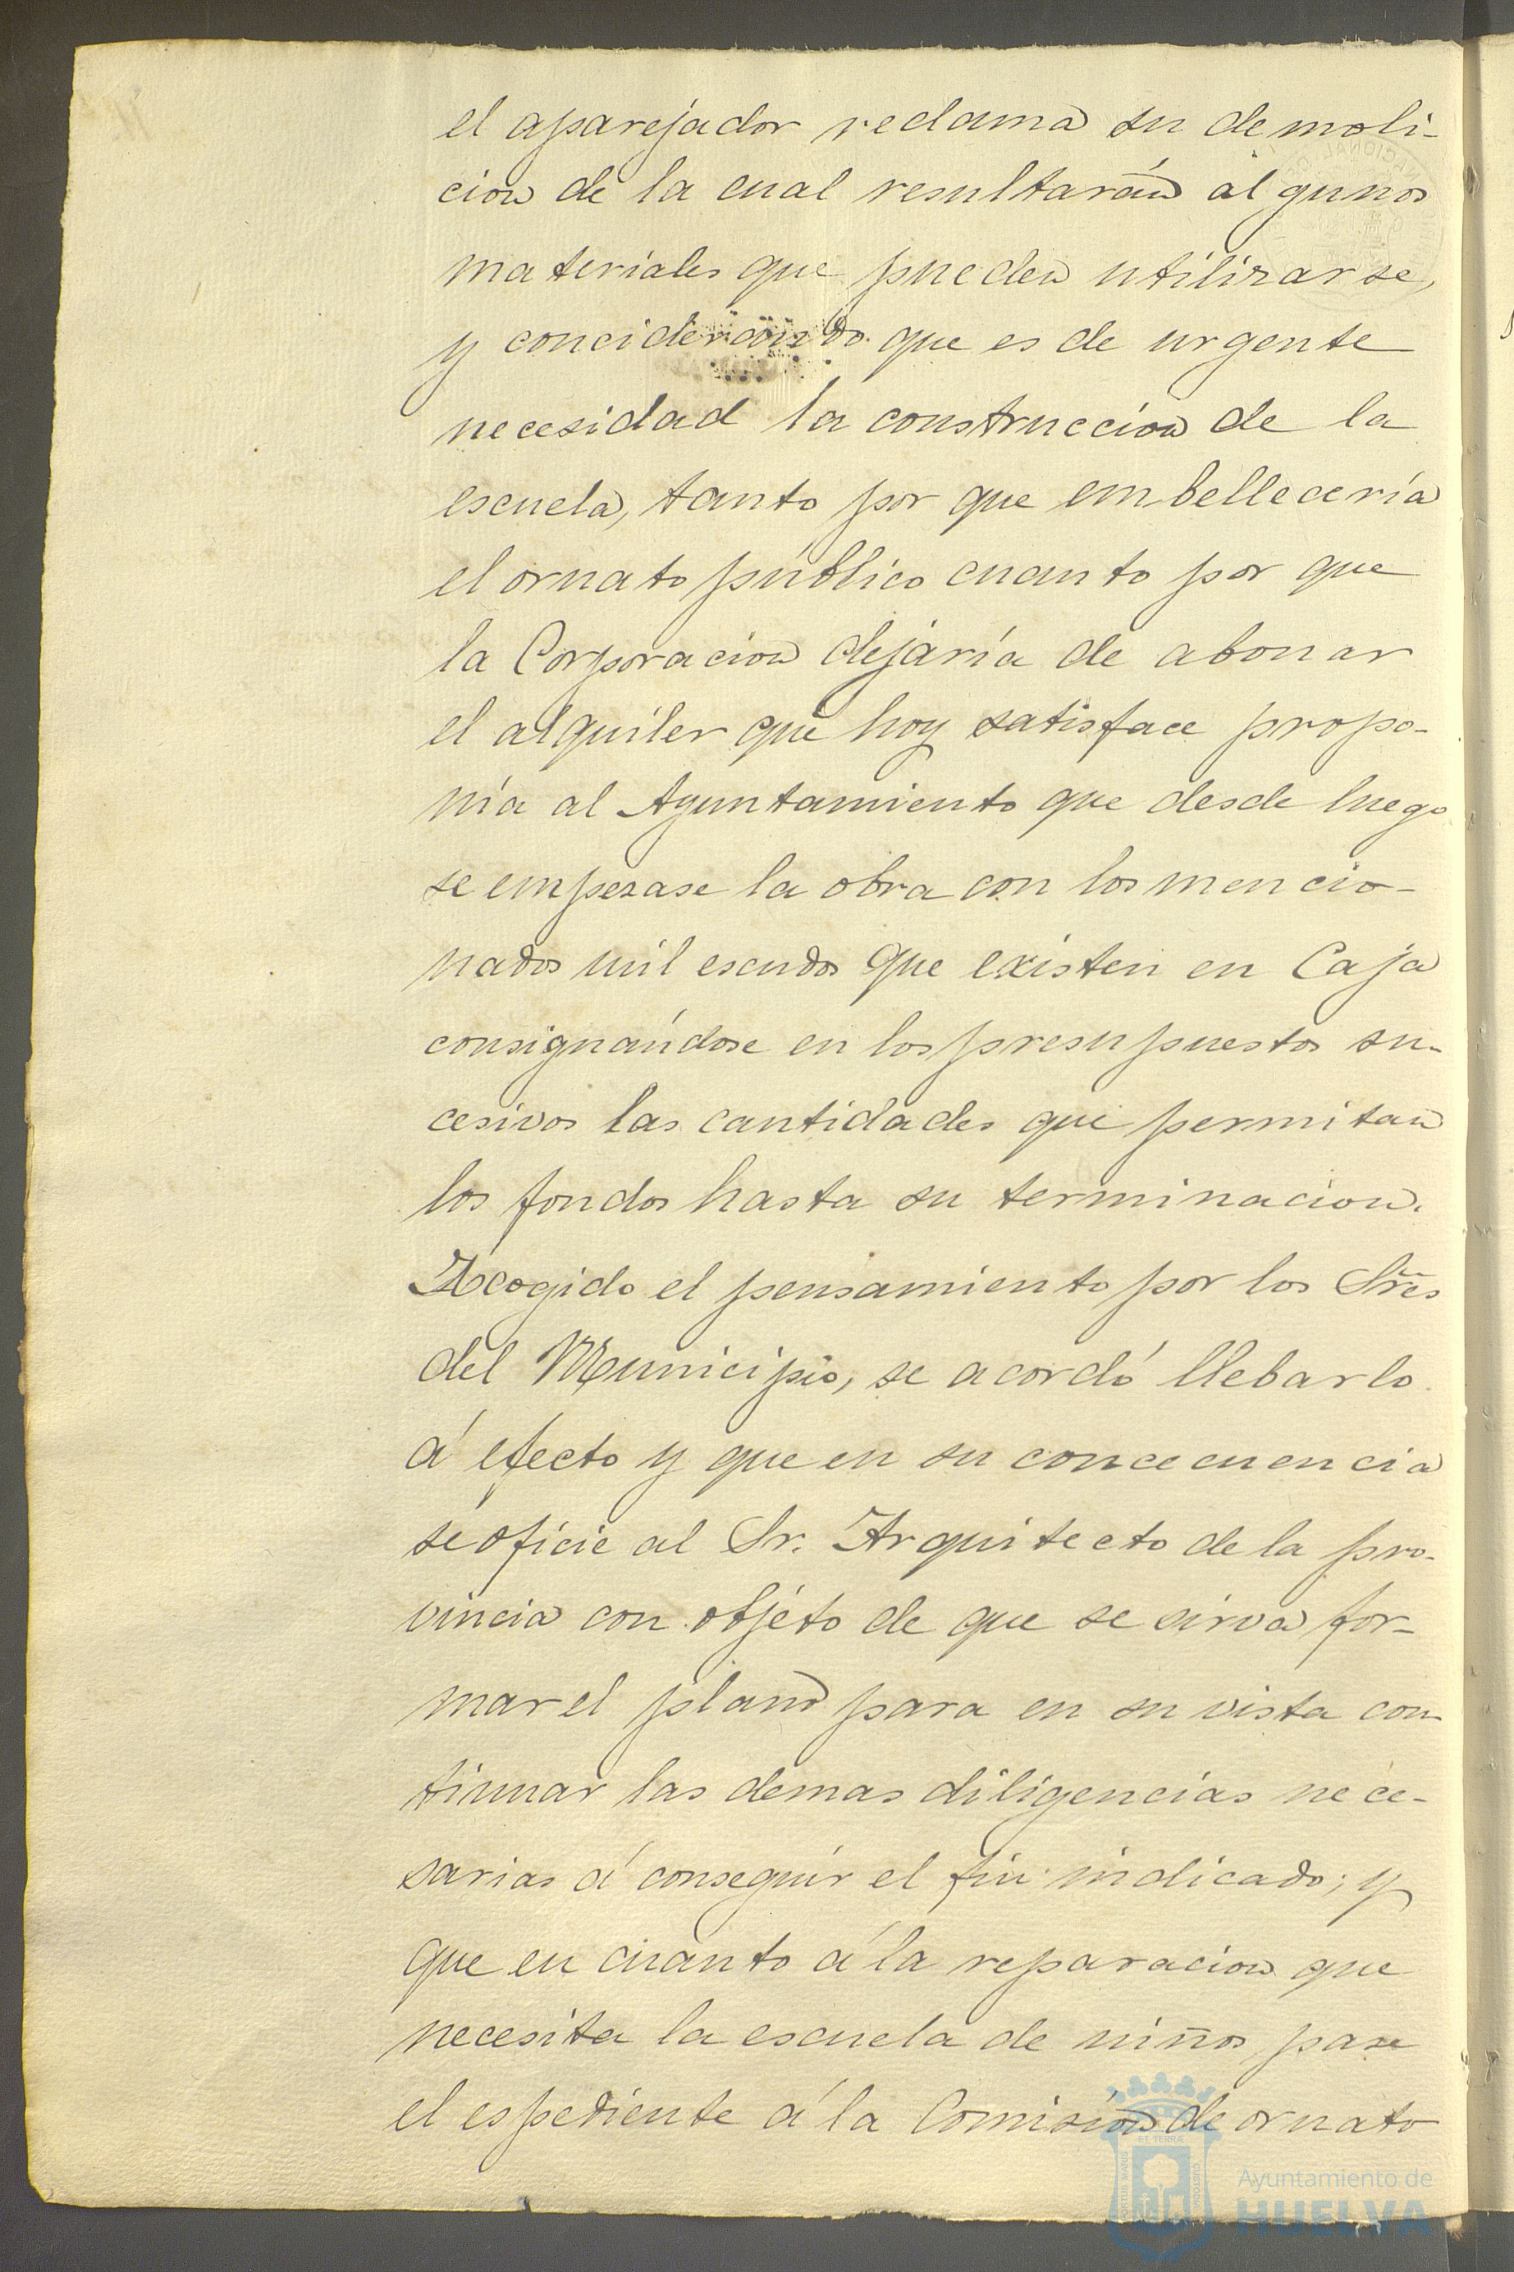 el aparejador reclama su demoli-
cion de la cual resultarán algunos
materiales que pueden utilizarse,
y conciderando que es de urgente
necesidad la construccion de la
escuela, tanto por que embelleceria
el ornato público cuanto por que
la Corporacion dejaría de abonar
el alquiler que hoy satisface propo-
nía al Ayuntamiento que desde luego
se empezase la obra con los mencio-
nados mil escudos que existen en Caja
consignándose en los presupuestos su-
cesivos las cantidades que permitan
los fondos hasta su terminacion.
Acogido el pensamiento por los Sres
del Municipio, se acordó llebarlo
á efecto y que en su concecuencia
se oficie al Sr. Arquitecto de la pro-
vincia con objéto de que se sirva for-
mar el plano para en su vista con-
tinuar las demas diligencias nece-
sarias á conseguir el fin indicado; y
que en cuanto á la reparacion que
necesita la escuela de niños, pase
el espediente á la Comision de ornato
Ayuntamiento de
HUELVA